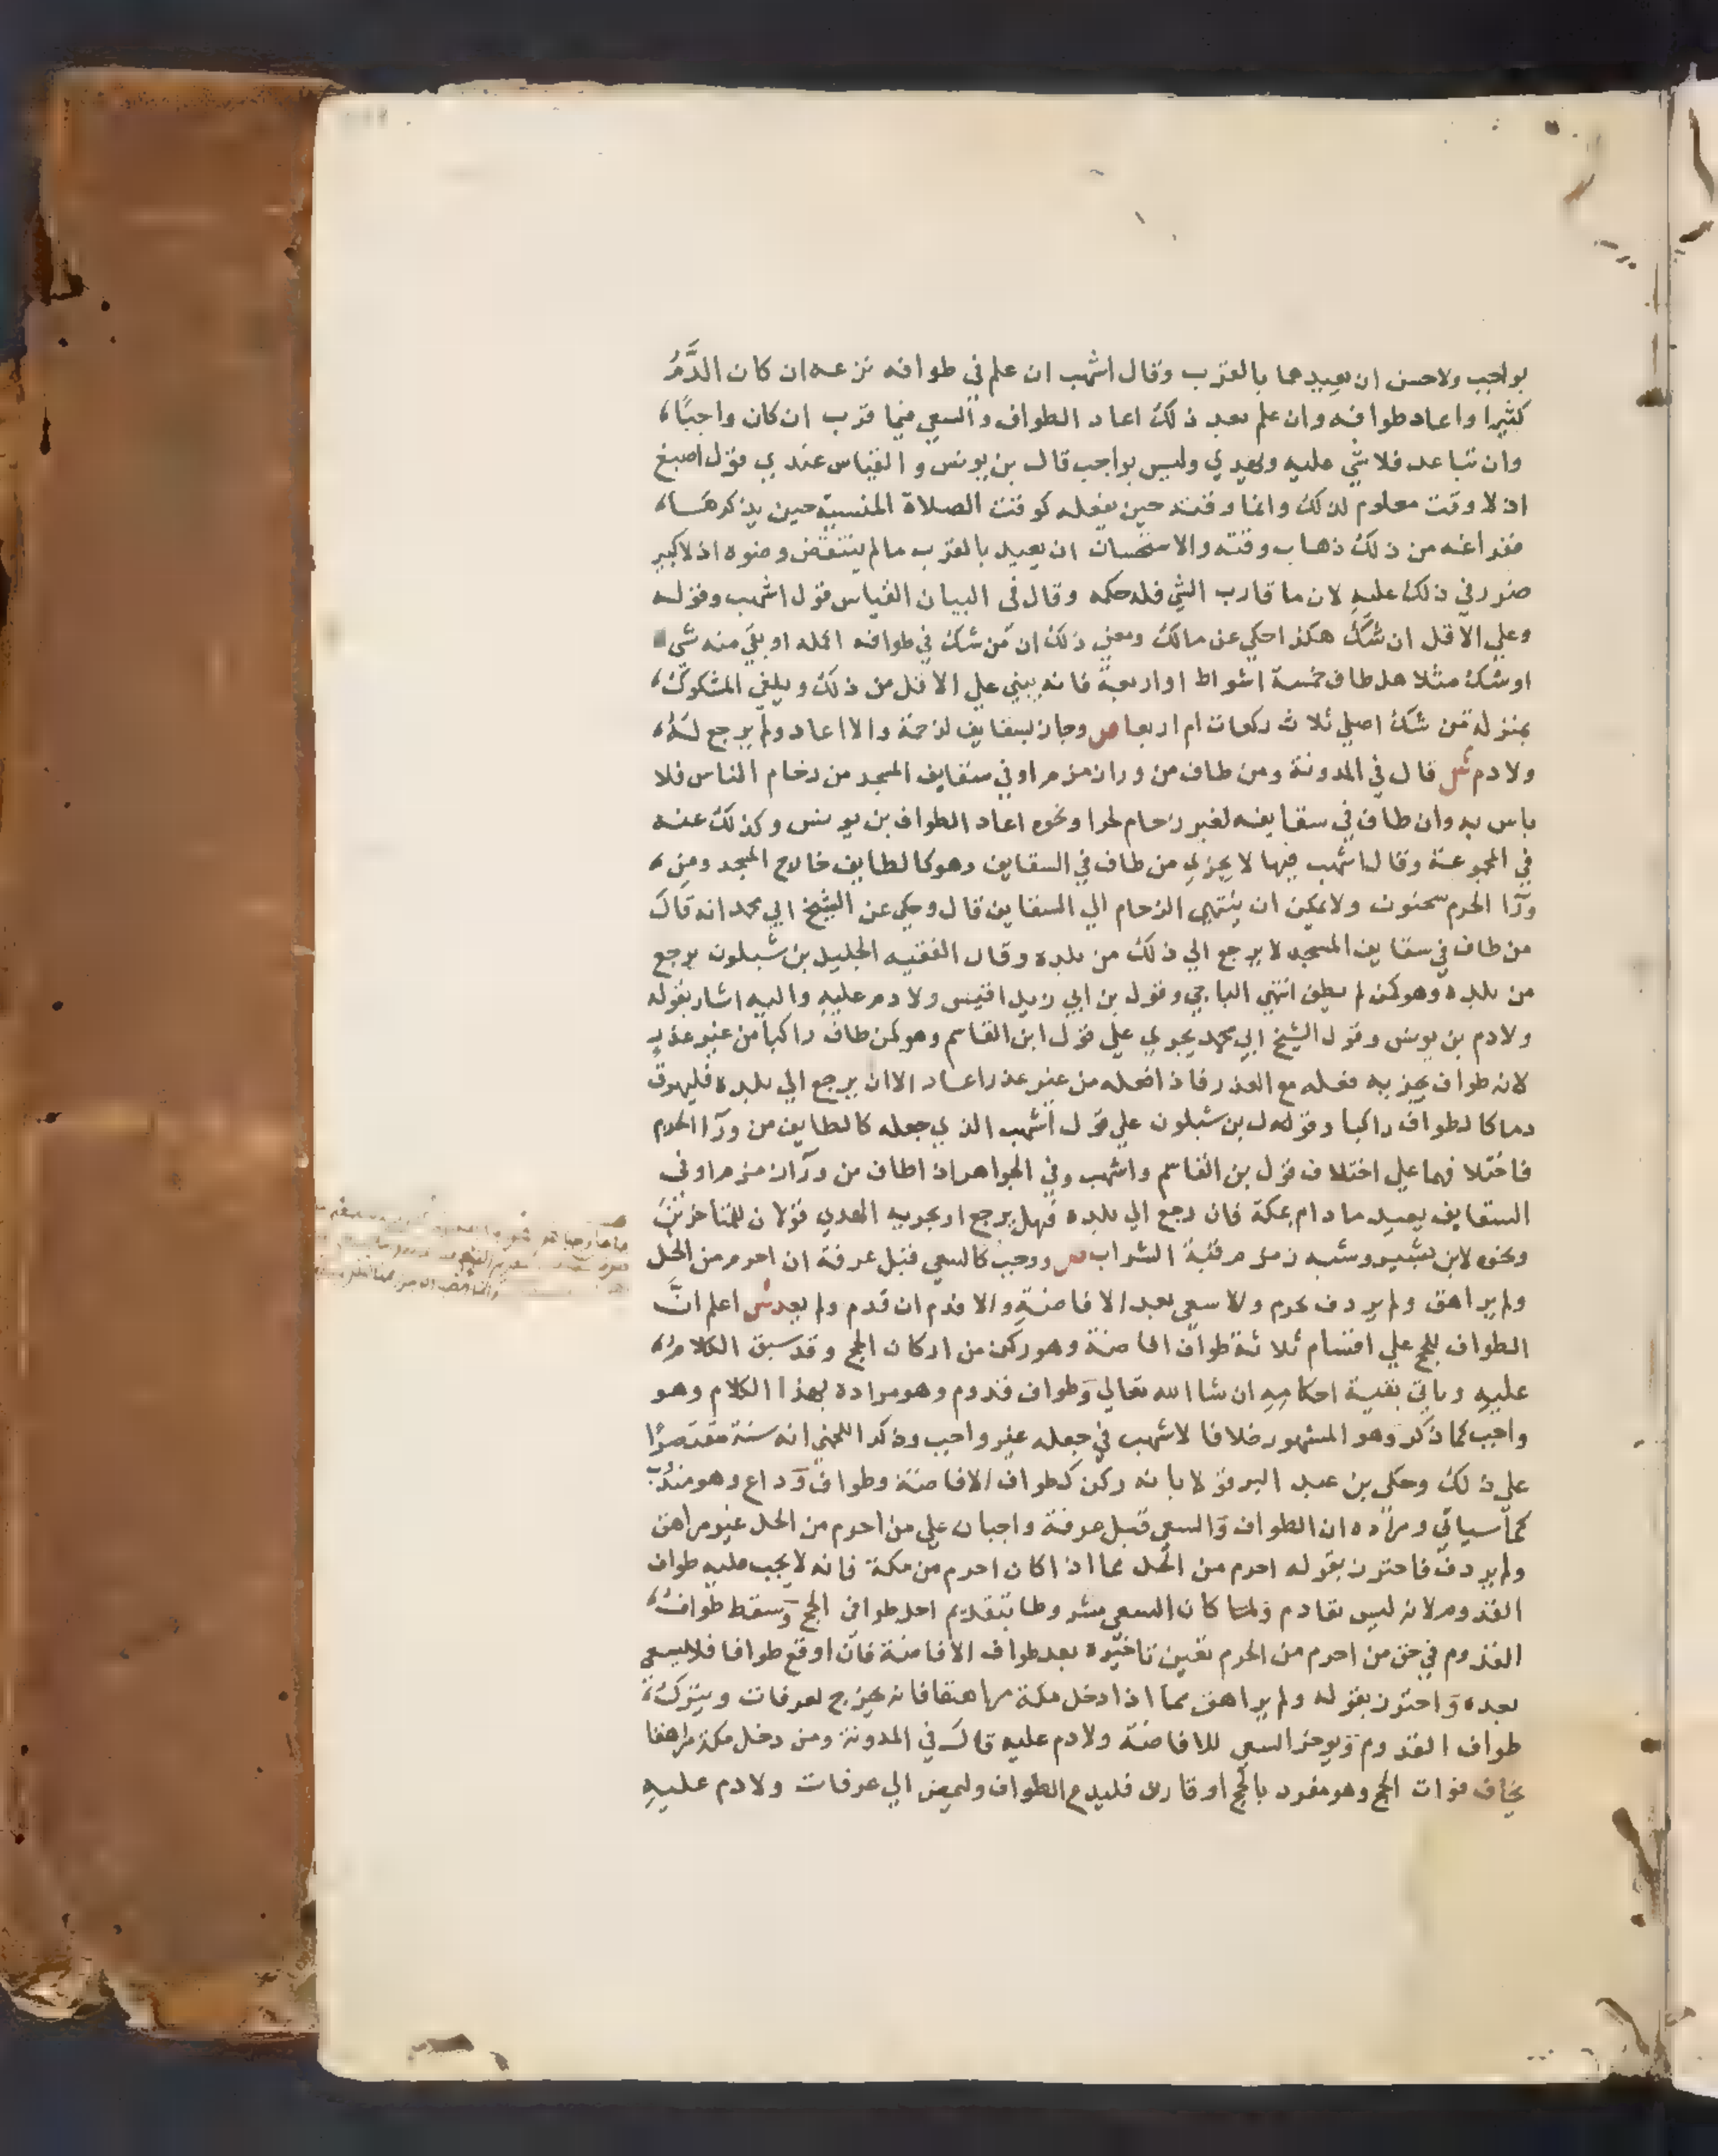 بواجب ولاحسن ان يعيدهما بالقرب وقال اشهب ان علم في طوافه نزعه ان كان الدَّمُ
كثيرا واعاد طوافه وان علم بعد ذلك اعاد الطواف والسعي فيما قرب ان كان واجبًا،
وان تباعد فلا شي عليه ويهدي وليس بواجب قال بن يونس و القياس عندي قول اصبغ
اذ لا وقت معلوم لذلك وانما وقته حين يفعله كوقت الصلاة المنسية حين يذكرهـا،
ففراغه من ذلك ذهاب وقته والاستحسان ان يعيد بالقرب ما لم ينتقض وضوه اذ لا كبير
ضرر في ذلك عليه لان ما قارب الشي فله حكمه وقال في البيان القياس قول اشهب وقوله
وعلي الاقل ان شك هكذا حكي عن مالك ومعني ذلك ان من شك في طوافه اكمله او بقي منه شي
او شك مثلا هل طاف خمسة اشواط او اربعة فانه يبني علي الاقل من ذلك ويلغي المشكوك،
بمنزلة من شك اصلي ثلاث ركعات ام اربعا ص وجاز بسقايف لزحمة والا اعاد ولم يرجع له،
ولا دم ش قال في المدونة ومن طاف من ورا زمزم او في سقايف المسجد من زحام الناس فلا
باس به وان طاف في سقايفه لغير زحام لحرا ونحوه اعاد الطواف بن يونس وكذلك عنه
في المجموعة وقال اشهب فيها لا يجزي من طاف في السقايف وهو كالطايف خارج المسجد ومن،
ورآ الحرم سحنون ولا يمكن ان ينتهي الزحام الي السقايف قال وحكي عن الشيخ ابي محمد انه قال
من طاف في سقايف المسجد لا يرجع الي ذلك من بلده وقال الفقيه الجليل بن شبلون يرجع
من بلده وهو كمن لم يطف انتهي الباجي وقول بن ابي زيد اقيس ولا دم عليه واليه اشار بقوله
ولا دم بن يونس وقول الشيخ ابي محمد يجري علي قول ابن القاسم وهو كمن طاف راكبا من غير عذر
لانه طواف يجزيه فعله مع العذر فاذا فعله من غير عذر اعاد الا ان يرجع الي بلده فليهرق
دما كالطواف راكبا وقول بن شبلون علي قول اشهب الذي جعله كالطايف من ورآ الحرم
فاختلافهما علي اختلاف قول بن القاسم واشهب وفي الجواهر اذا طاف من ورآ زمزم او في
السقايف يعيد ما دام بمكة فان رجع الي بلده فهل يرجع او يجزيه الهدي قولان للمتاخرين
ونحوه لابن بشير وشبه زمزم قبة الشراب ص ووجب كالسعي قبل عرفة ان احرم من الحل
ولم يراهق ولم يردف بحرم والا سعي بعد الافاضة والا فدم ان قدم ولم يعد ش اعلم انَّ
الطواف للحج علي اقسام ثلاثة طواف افاضة وهو ركن من اركان الحج وقد سبق الكلام،
عليه وياتي بقية احكامه ان شا الله تعالي وطواف قدوم وهو مراده بهذا الكلام وهو
واجب كما ذكر وهو المشهور خلافا لاشهب في جعله غير واجب وذكر اللخمي انه سنة مقتصرًا
علي ذلك وحكي بن عبد البر قولا بانه ركن كطواف الافاضة وطواف وداع وهو مندوب
كما سياتي ومراده ان الطواف والسعي قبل عرفة واجبان علي من احرم من الحل غير مراهق
ولم يردف فاحترز بقوله احرم من الحل مما اذا كان احرم من مكة فانه لا يجب عليه طواف
القدوم لانه ليس بقادم ولما كان السعي مشروطا بتقديم احد طوافي الحج وسقط طواف،
القدوم في حق من احرم من الحرم تعين تاخيره بعد طواف الافاضة فان اوقع طوافا فلا يسعي
بعده واحترز بقوله ولم يراهق مما اذا دخل مكة مراهقا فانه يخرج لعرفات ويترك،
طواف القدوم ويوخر السعي للافاضة ولا دم عليه قال في المدونة ومن دخل مكة مراهقا
يخاف فوات الحج وهو مفرد بالحج او قارن فليدع الطواف وليمض الي عرفات ولا دم عليه